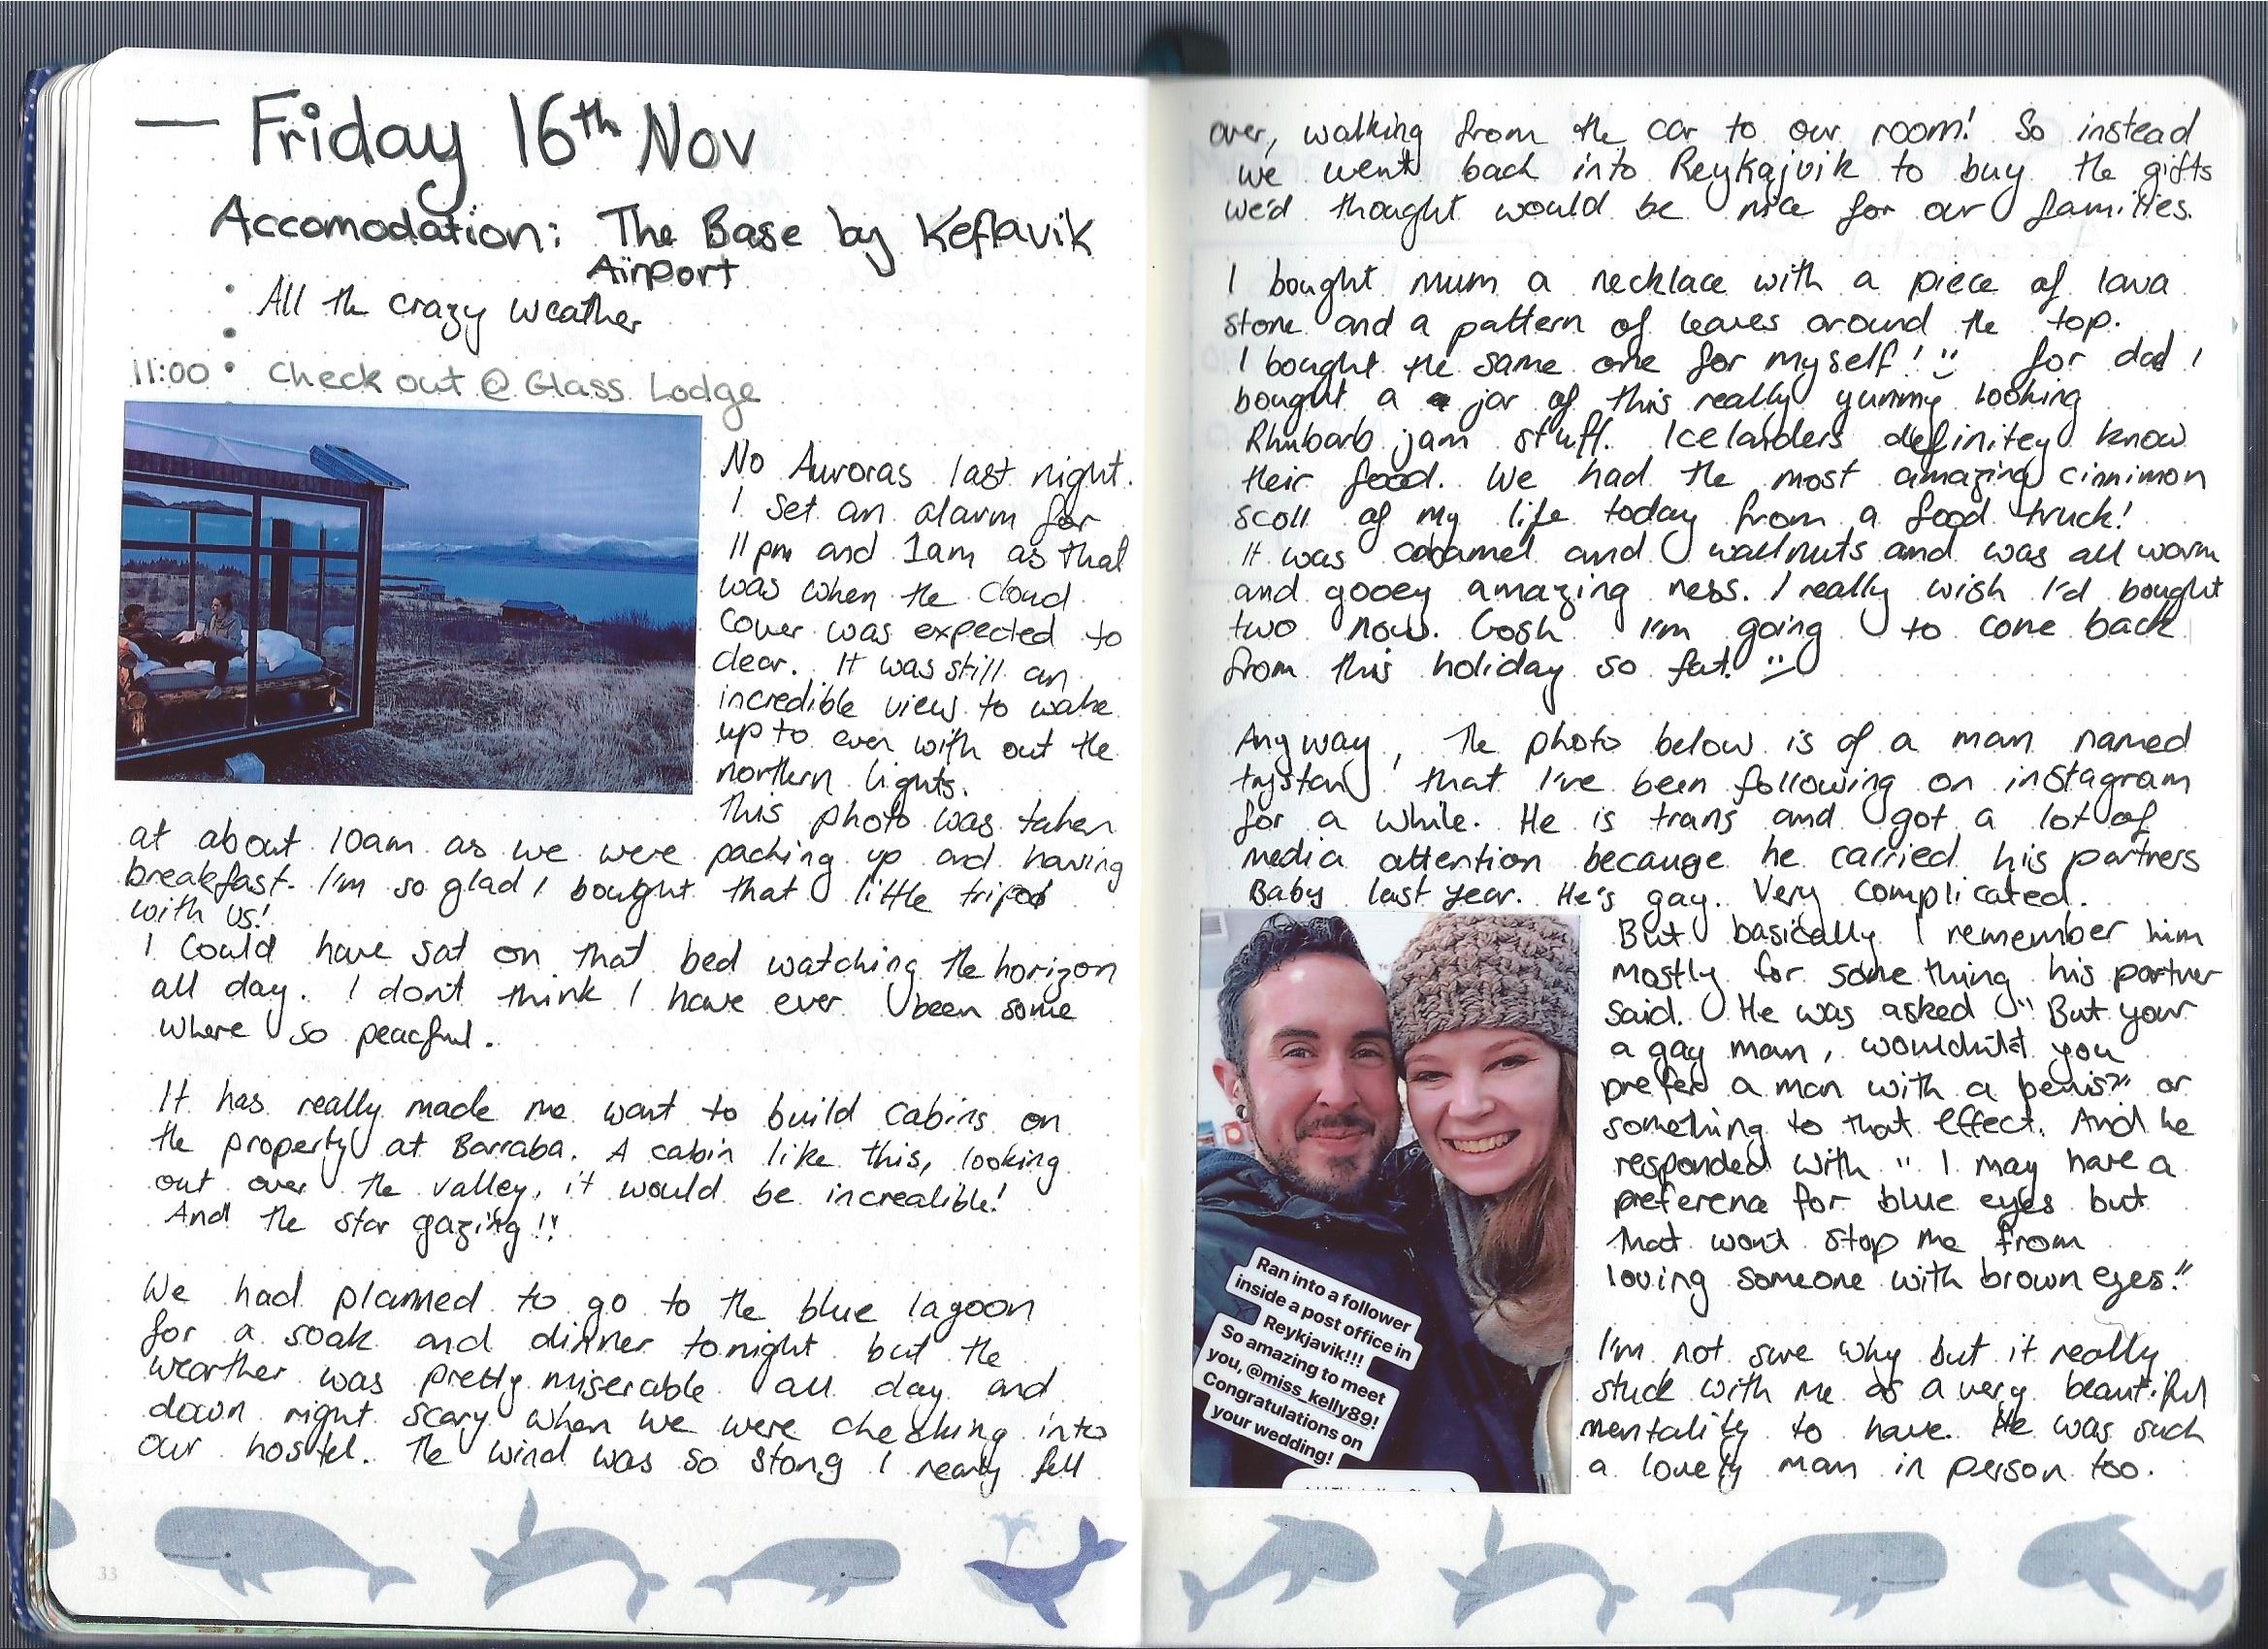 — Friday 16th Nov
Accomodation: The Base by Keflavik
Airport
• All the crazy weather
•
11:00 • Check out @ Glass Lodge
No Auroras last night.
I set an alarm for
11pm and 1am as that
was when the cloud
cover was expected to
clear. It was still an
incredible view to wake
up to even with out the
northern lights.
This photo was taken
at about 10am as we were packing up and having
breakfast. I'm so glad I bought that little tripod
with us!
I could have sat on that bed watching the horizon
all day. I don't think I have ever been some
where so peacful.
It has really made me want to build cabins on
the property at Barraba. A cabin like this, looking
out over the valley, it would be increalible!
And the star gazing!!
We had planned to go to the blue lagoon
for a soak and dinner tonight but the
wearther was pretty miserable all day and
down right scary when we were checking into
our hostel. The wind was so stong I nearly fell
33
over, walking from the car to our room! So instead
we went back into Reykajvik to buy the gifts
we'd thought would be nice for our families.
I bought mum a necklace with a piece of lava
stone and a pattern of leaves around the top.
I bought the same one for myself! :) for dad I
bought a jar of this really yummy looking
Rhubarb jam stuff. Icelanders definitey know
their food. We had the most amazing cinnimon
scoll of my life today from a food truck!
It was caramel and wallnuts and was all warm
and gooey amazing ness. I really wish I'd bought
two now. Gosh I'm going to come back
from this holiday so fat! :)
Any way, the photo below is of a man named
trystan that I've been following on instagram
for a while. He is trans and got a lot of
media attention becauge he carried his partners
Baby last year. He's gay. Very complicated.
But basically I remember him
mostly for something his partner
said. He was asked "But your
a gay man, wouldn't you
prefer a man with a penis?" or
something to that effect. And he
responded with "I may have a
preferena for blue eyes but
that won't stop me from
loving someone with brown eyes."
I'm not sure why but it really
stuck with me as a very beautiful
mentality to have. He was such
a lovely man in person too.
Ran into a follower
inside a post office in
Reykjavik!!!
So amazing to meet
you, @miss_kelly89!
Congratulations on
your wedding!